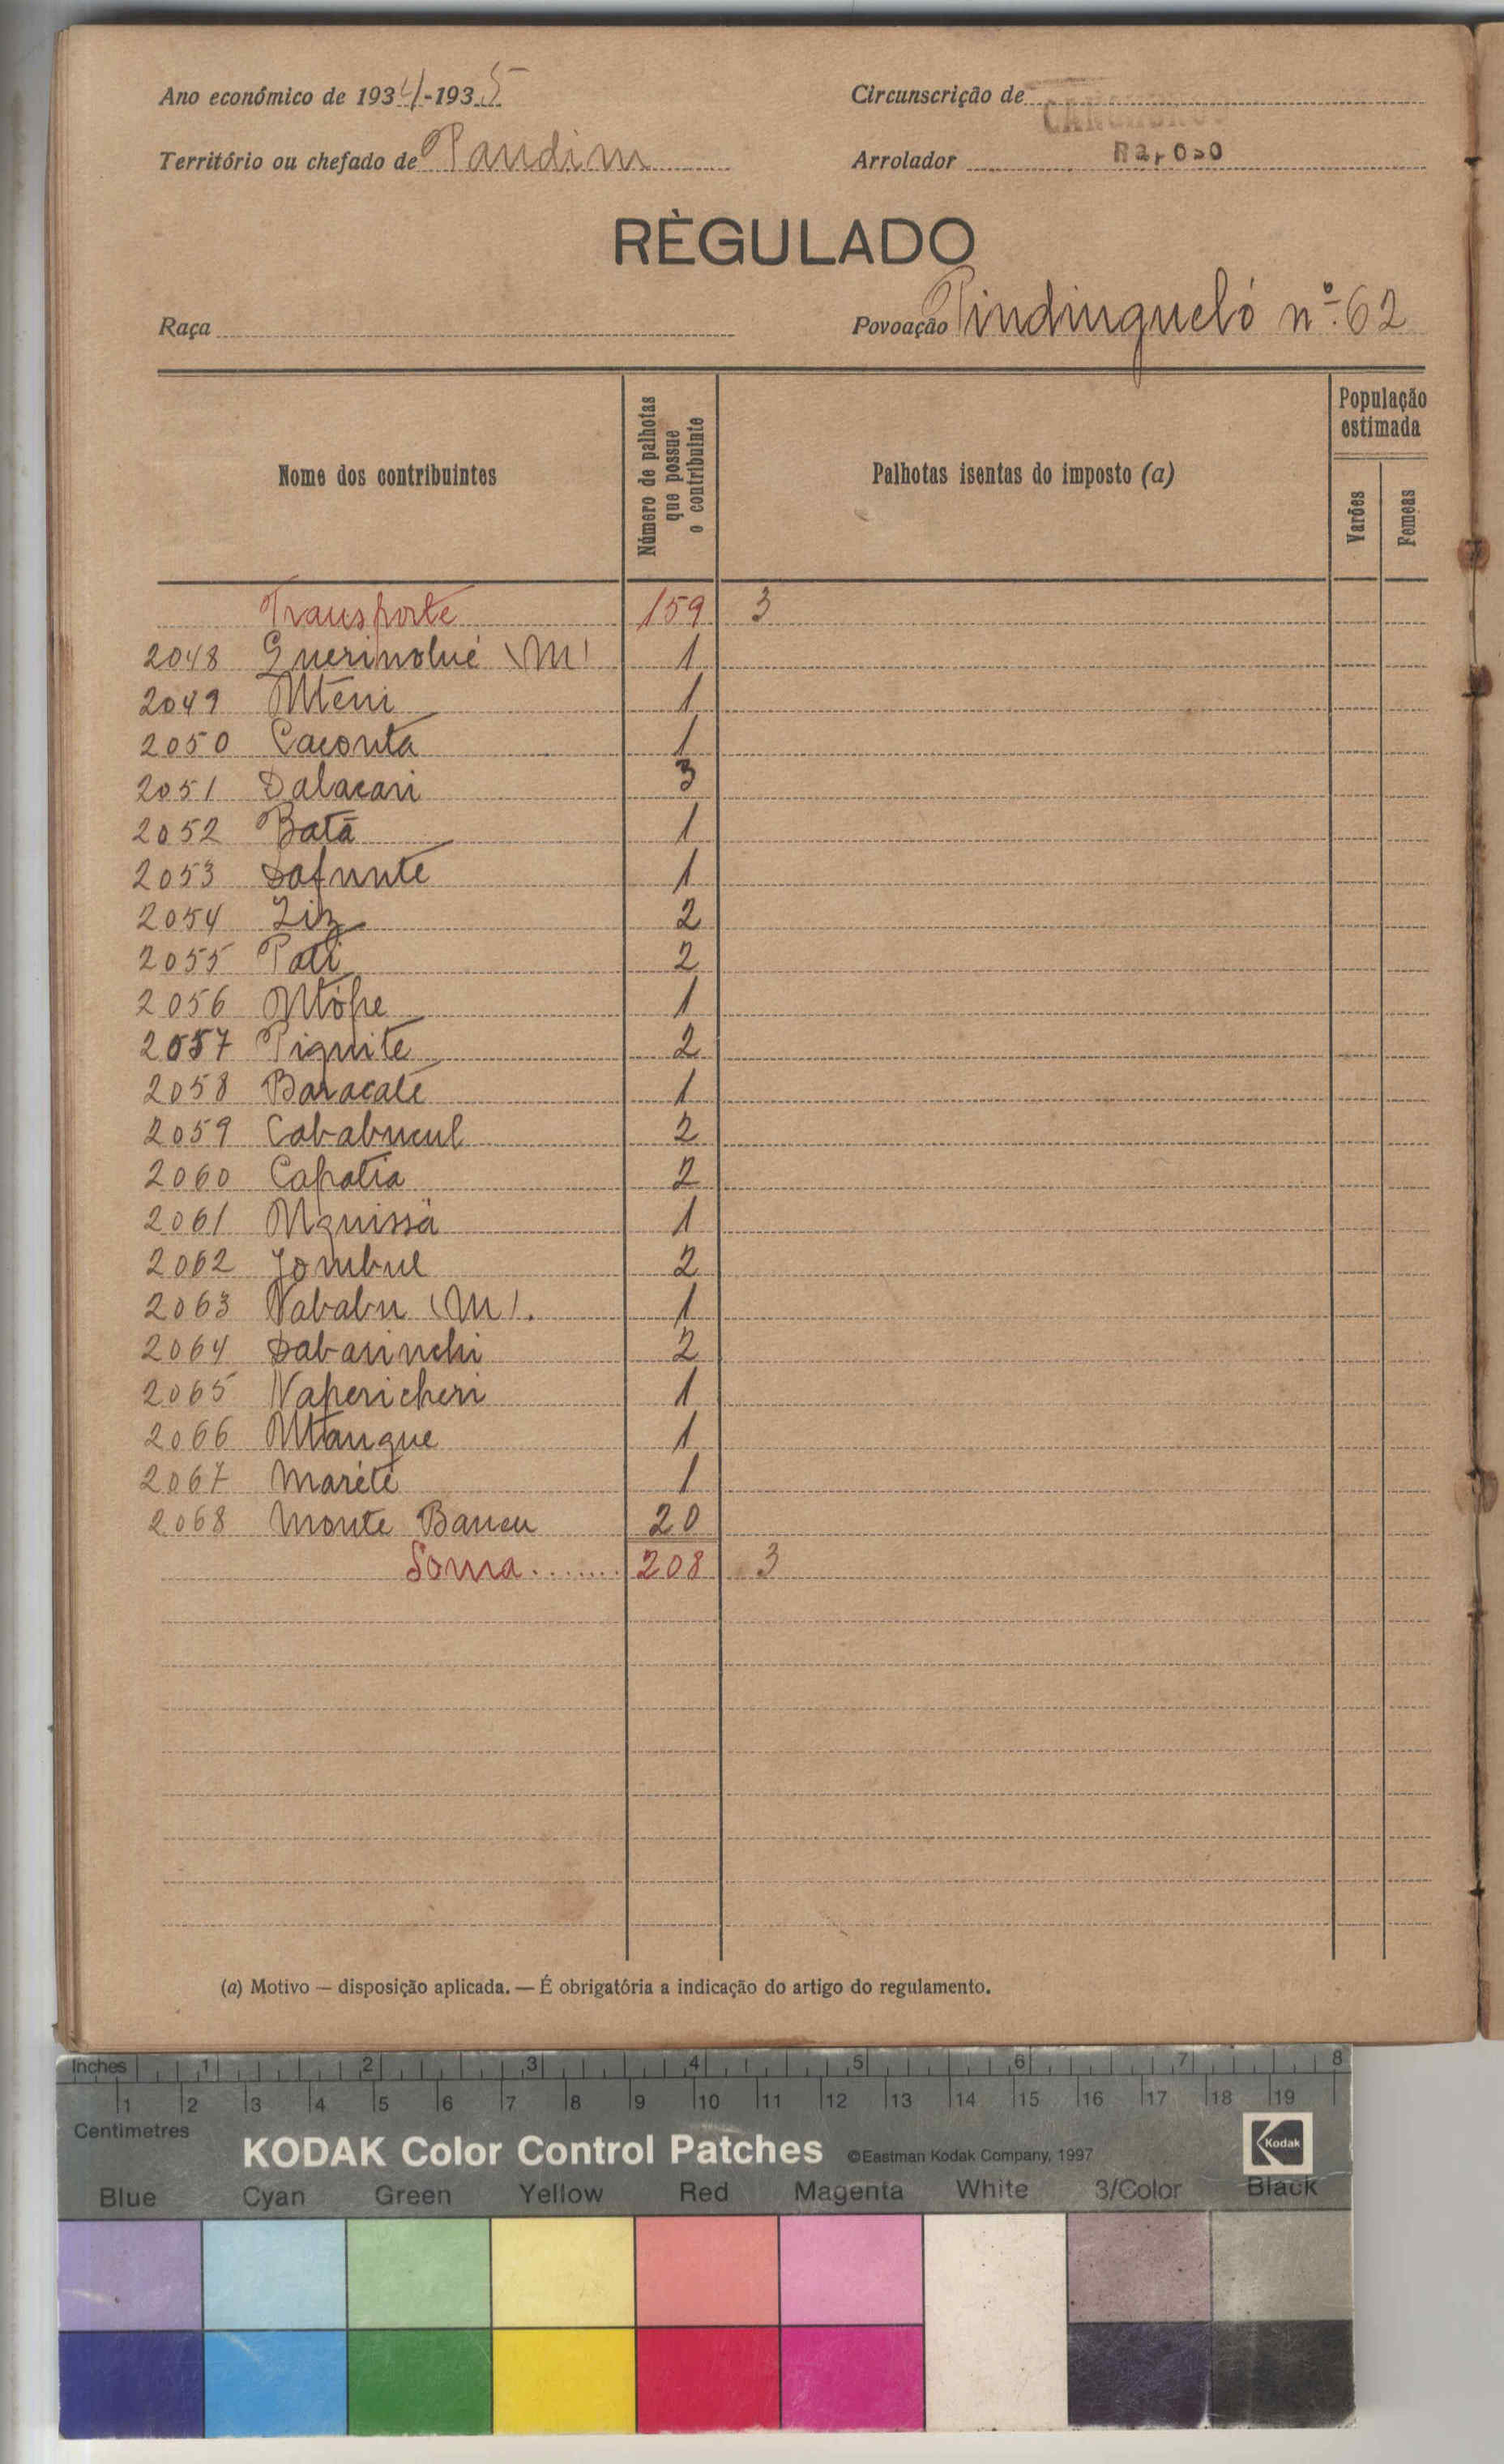 Ano económico de 1934-1935
Circunscrição de
Território ou chefado de Pandim
Arrolador Raposo
RÈGULADO
Raça
Povoação Pindingueló nº 62
Nome dos contribuintes
Número de palhotas que possue o contribuinte
Palhotas isentas do imposto (a)
População estimada
Varões
Femeas
Transporte 159 3
2048 (M) 1
2049 Mteni 1
2050 Caconta 1
2051 Dalacari 3
2052 Batã 1
2053 Dafunte 1
2054 Ziz 2
2055 Pati 2
2056 Ntópe 1
2057 Piquite 2
2058 Baracaté 1
2059 Cababucul 2
2060 Capatia 2
2061 Nquissã 1
2062 Jombul 2
2063 Nababu (M). 1
2064 Dabarinchi 2
2065 Napericheri 1
2066 Ntangue 1
2067 Marété 1
2068 Monte Bancu 20
Soma....... 208 3
(a) Motivo — disposição aplicada. — É obrigatória a indicação do artigo do regulamento.
Inches 1 2 3 4 5 6 7 8
1 2 3 4 5 6 7 8 9 10 11 12 13 14 15 16 17 18 19
Centimetres
KODAK Color Control Patches ©Eastman Kodak Company, 1997 Kodak
Blue Cyan Green Yellow Red Magenta White 3/Color Black